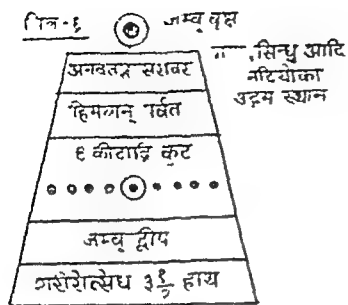 चित्र-६
जम्बू वृक्ष
सिन्धु आदि
नदियोका
उद्गम स्थान
अनवतप्त सरोवर
हिमवान् पर्वत
९ कीटाद्रि कूट
जम्बू द्वीप
शरीरोत्सेध ३ १/२ हाथ